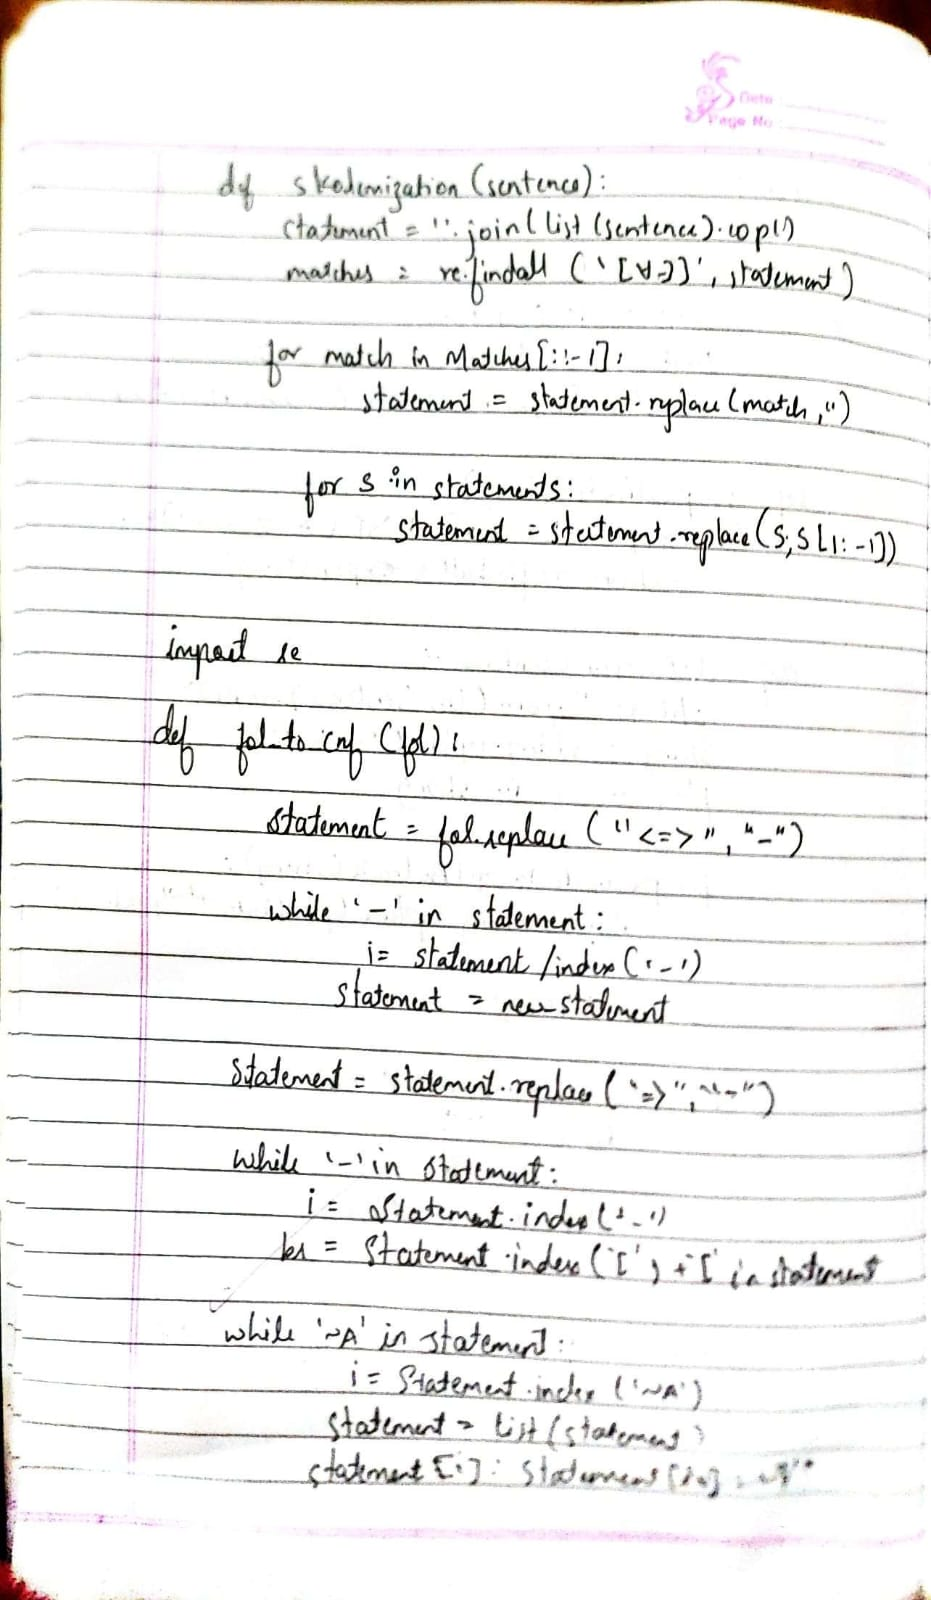 Date
Page No
def skolemization (sentence):
statement = ''.join(list(sentence).copy())
matches = re.findall ('[∀∃]', statement)
for match in Matches[::-1]:
statement = statement.replace(match,'')
for s in statements:
statement = statement.replace(s,s[1:-1])
import re
def fol_to_cnf (fol):
statement = fol.replace ("<=>", "-")
while '-' in statement:
i= statement/index('-')
statement = new_statement
Statement = statement.replace("=>","-")
while '-' in statement:
i = statement.index('-')
br = statement.index('[') + '[' in statement
while '~A' in statement:
i= Statement.index('~A')
statement = list(statement)
statement [i]: statement